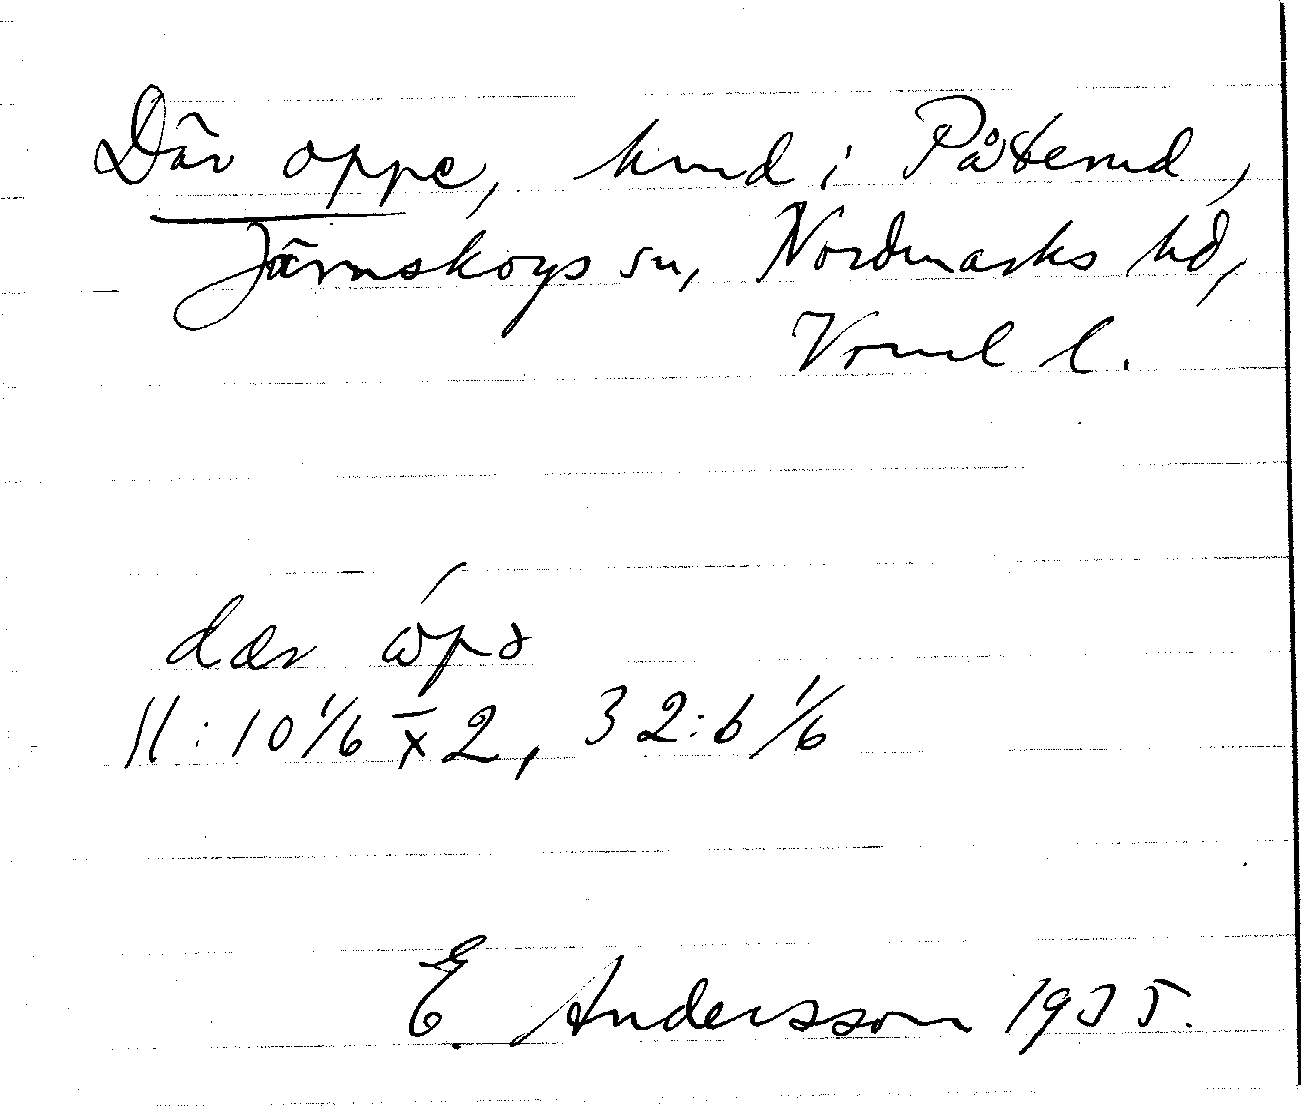 Där oppe, hmd i Påterud,
Järnskogs sn, Nordmarks hd,
Vrml l.
dær ɷ́pə
11:10 1/6 x̄ 2, 32:6 1/6
E. Andersson 1935.